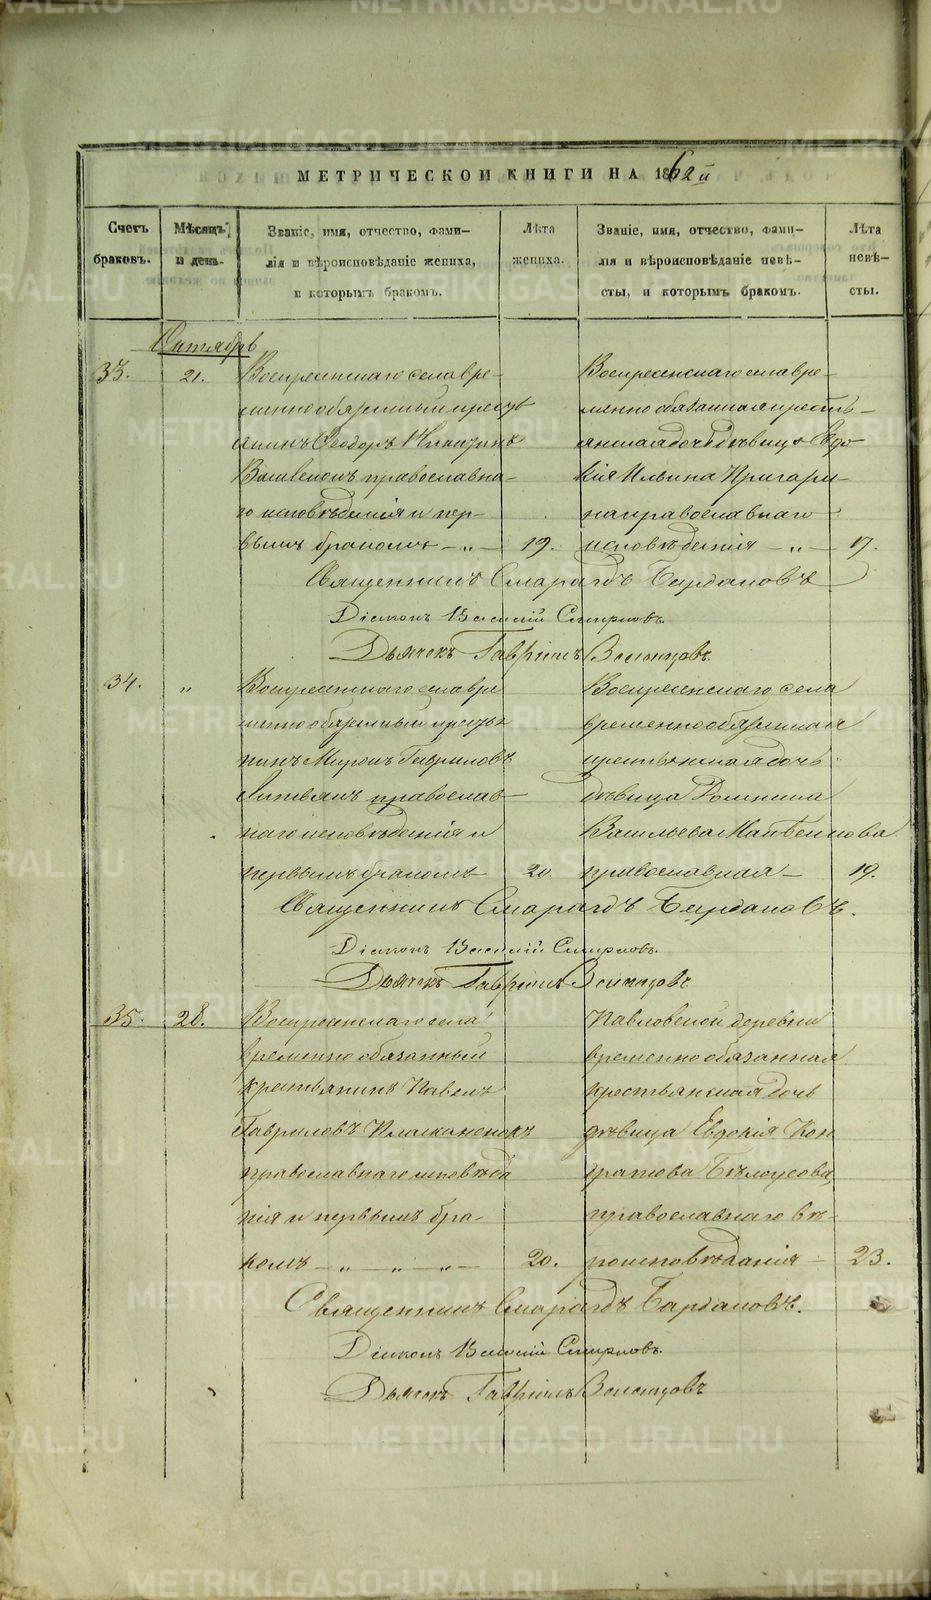 МЕТРИЧЕСКОЙ КНИГИ НА 1862й
Счетъ браковъ.
Мѣсяцъ и день.
Званіе, имя, отчество, фами-
лія и вѣроисповѣданіе жениха,
и которымъ бракомъ.
Лѣта
жениха.
Званіе, имя, отчество, фами-
лія и вѣроисповѣданіе невѣ-
сты, и которымъ бракомъ.
Лѣта
невѣ-
сты.
Октябрь
33. 21.
Воскресенскаго села вре-
менно обязанный кресть
янинъ Ѳеодоръ Никитинъ
православна-
го исповѣданія и пер-
вымъ бракомъ — „ — 19.
Воскресенскаго села вре-
менно обязанная кресть-
янская дочь дѣвица Евдо
кія Ильина
на православнаго
исповѣданія — „ — 17.
Священникъ Смарагдъ Бирдановъ
Діаконъ Василій Смирновъ.
Дьячекъ Гавріилъ
34. „
Воскресенскаго села вре
менно обязанный кресть
янинъ Миронъ Гавриловъ
Литвякъ православ-
наго исповѣданія и
первымъ бракомъ 20.
Воскресенскаго села
временно обязанная
крестьянская дочь
дѣвица Домника
Васильева
православная — 19.
Священникъ Смарагдъ Бирдановъ.
Діаконъ Василій Смирновъ.
Дьячекъ Гавріилъ
35. 28.
Воскресенскаго села
временно обязанный
крестьянинъ Павелъ
Гавриловъ
православнаго исповѣда
нія и первымъ бра-
комъ — „ — „ — „ — 20.
Павловской деревни
временно обязанная
крестьянская дочь
дѣвица Евдокія Кон
дратова Бѣлоусова
православнаго вѣ-
роисповѣданія — 23.
Священникъ Смарагдъ Бирдановъ.
Діаконъ Василій Смирновъ.
Дьячекъ Гавріилъ
METRIKI.GASO-URAL.RU